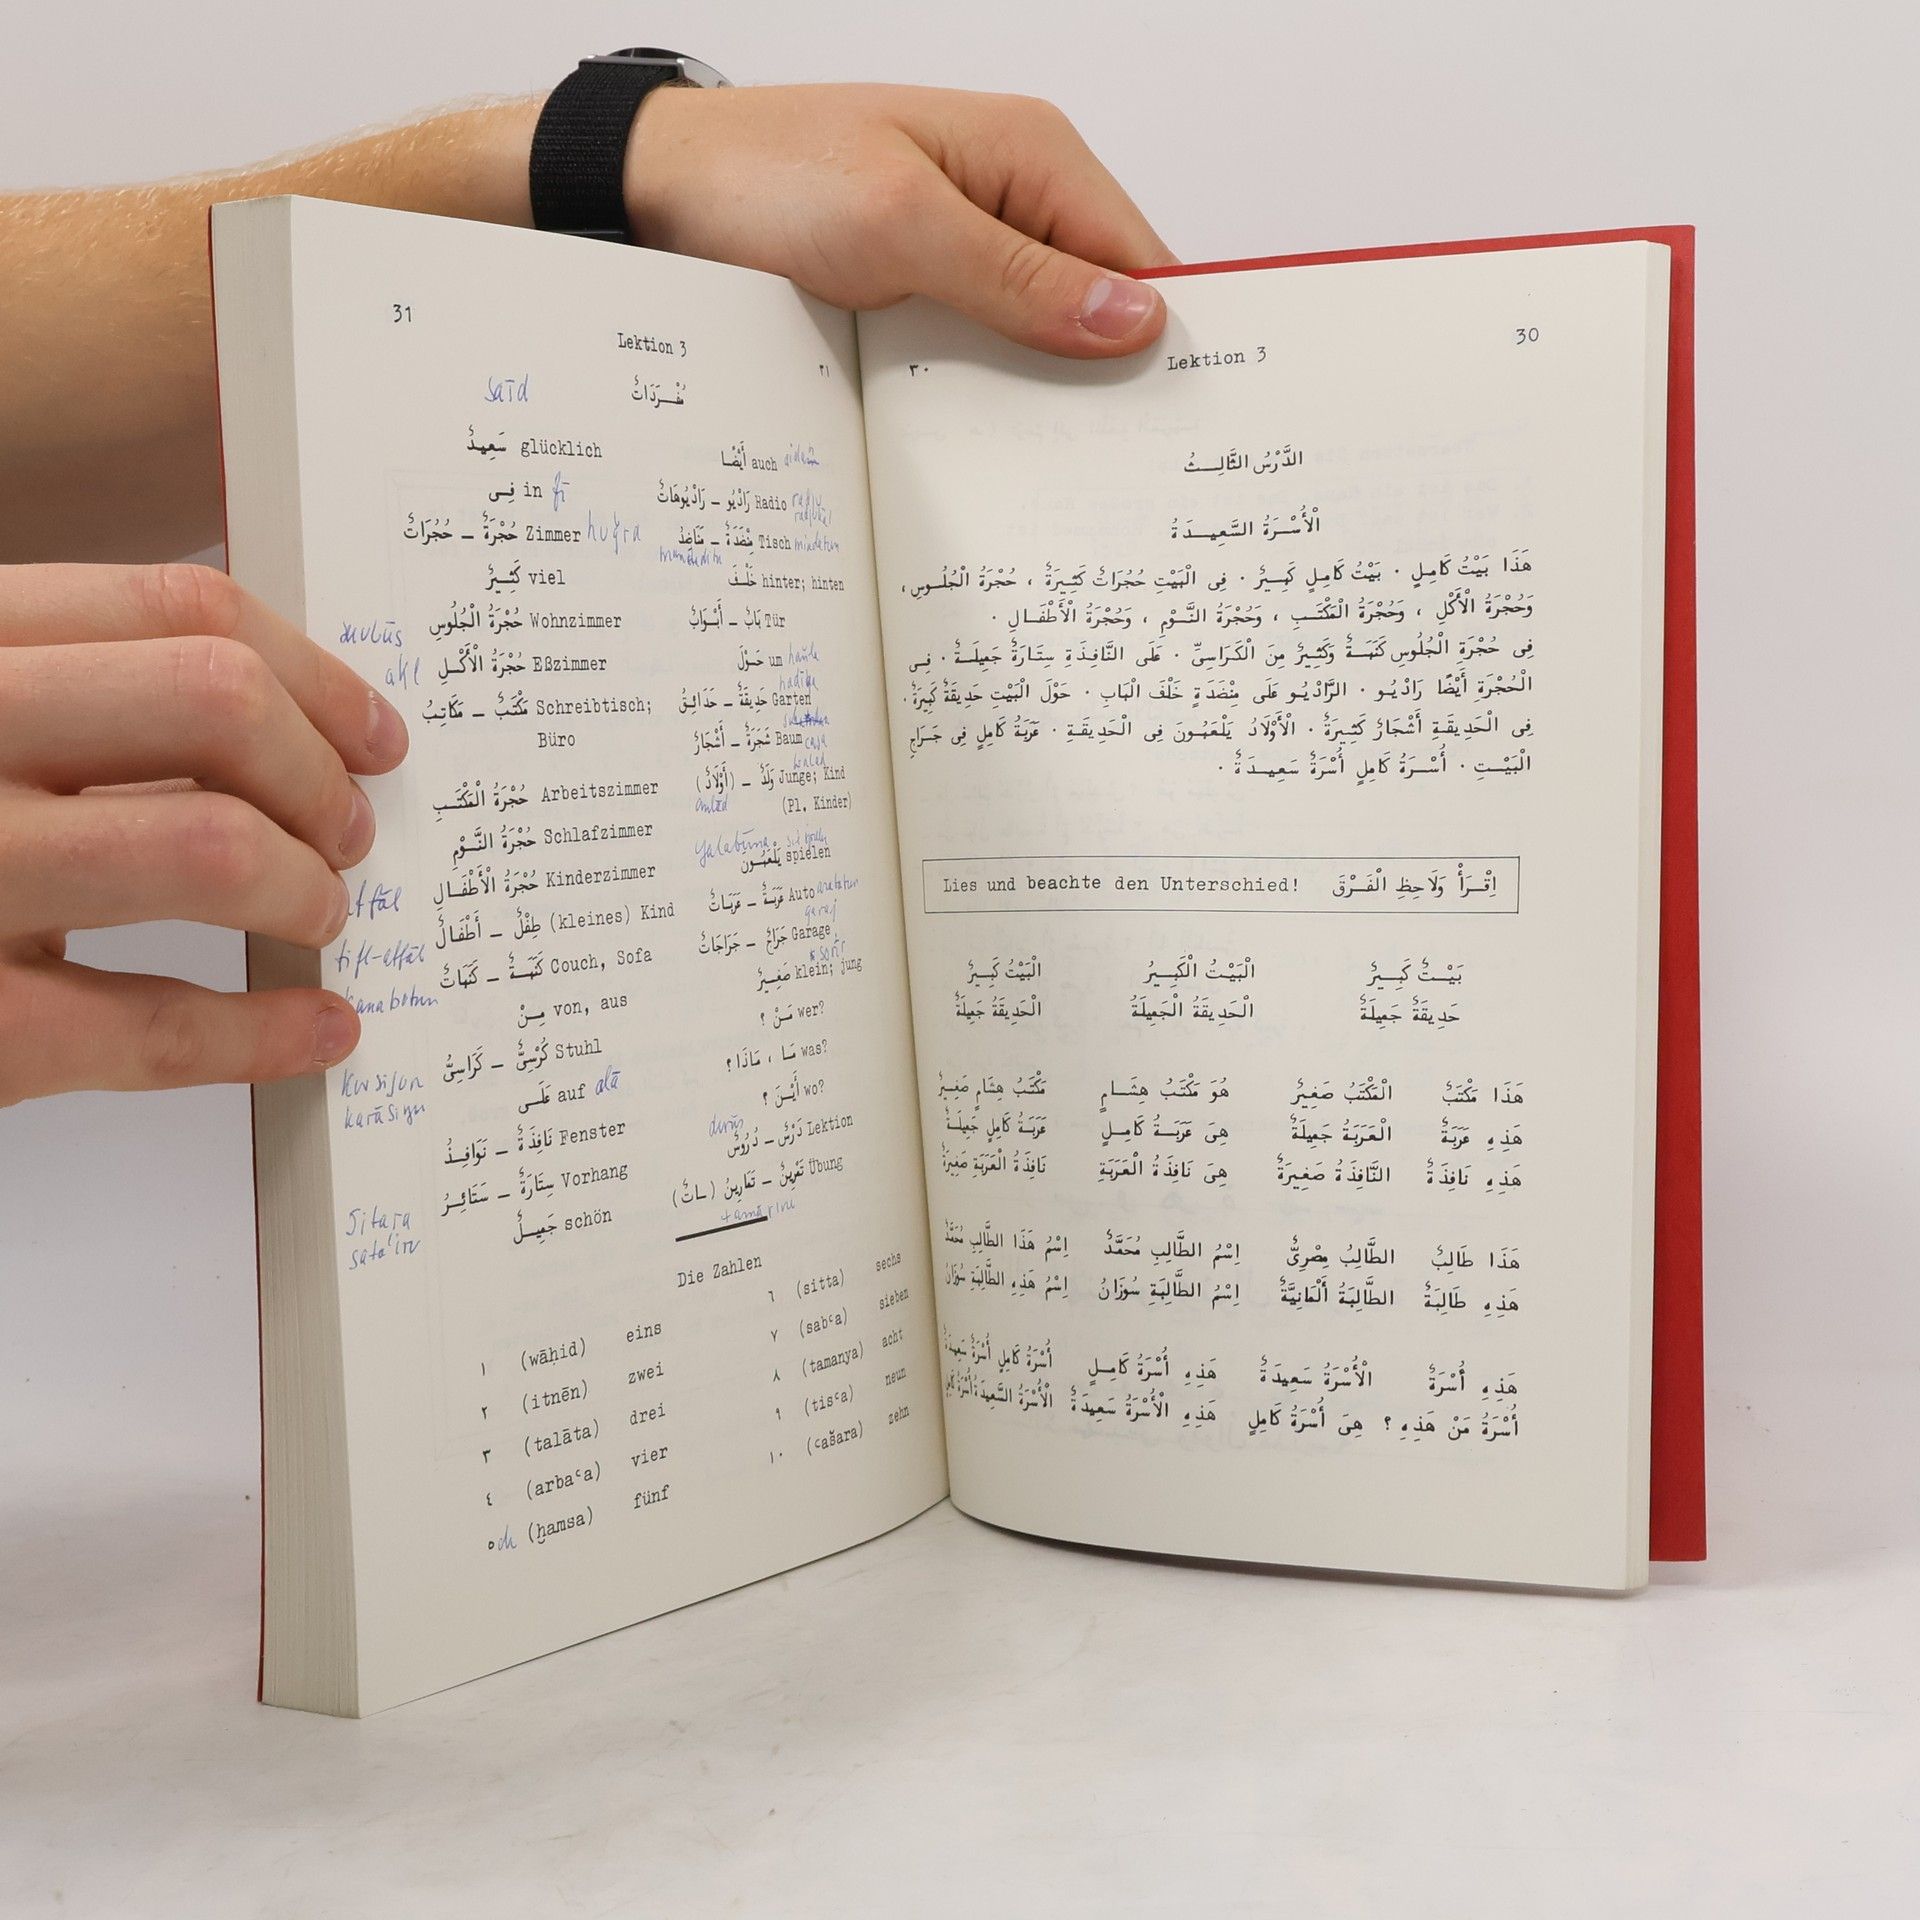 30
Lektion 3
٣٠
الدَّرْسُ الثَّالِثُ
الْأُسْرَةُ السَّعِيدَةُ
هَذَا بَيْتُ كَامِلٍ . بَيْتُ كَامِلٍ كَبِيرٌ . فِى الْبَيْتِ حُجُرَاتٌ كَثِيرَةٌ ، حُجْرَةُ الْجُلُوسِ ،
وَحُجْرَةُ الْأَكْلِ ، وَحُجْرَةُ الْمَكْتَبِ ، وَحُجْرَةُ النَّوْمِ ، وَحُجْرَةُ الْأَطْفَالِ .
فِى حُجْرَةِ الْجُلُوسِ كَنَبَةٌ وَكَثِيرٌ مِنَ الْكَرَاسِىِّ . عَلَى النَّافِذَةِ سِتَارَةٌ جَمِيلَةٌ . فِى
الْحُجْرَةِ أَيْضًا رَادْيُو . الرَّادْيُو عَلَى مِنْضَدَةٍ خَلْفَ الْبَابِ . حَوْلَ الْبَيْتِ حَدِيقَةٌ كَبِيرَةٌ .
فِى الْحَدِيقَةِ أَشْجَارٌ كَثِيرَةٌ . الْأَوْلَادُ يَلْعَبُونَ فِى الْحَدِيقَةِ . عَرَبَةُ كَامِلٍ فِى جَرَاجِ
الْبَيْتِ . أُسْرَةُ كَامِلٍ أُسْرَةٌ سَعِيدَةٌ .
Lies und beachte den Unterschied! اِقْرَأْ وَلَاحِظِ الْفَرْقَ
بَيْتٌ كَبِيرٌ الْبَيْتُ الْكَبِيرُ الْبَيْتُ كَبِيرٌ
حَدِيقَةٌ جَمِيلَةٌ الْحَدِيقَةُ الْجَمِيلَةُ الْحَدِيقَةُ جَمِيلَةٌ
هَذَا مَكْتَبٌ الْمَكْتَبُ صَغِيرٌ هُوَ مَكْتَبُ هِشَامٍ مَكْتَبُ هِشَامٍ صَغِيرٌ
هَذِهِ عَرَبَةٌ الْعَرَبَةُ جَمِيلَةٌ هِىَ عَرَبَةُ كَامِلٍ عَرَبَةُ كَامِلٍ جَمِيلَةٌ
هَذِهِ نَافِذَةٌ النَّافِذَةُ صَغِيرَةٌ هِىَ نَافِذَةُ الْعَرَبَةِ نَافِذَةُ الْعَرَبَةِ صَغِيرَةٌ
هَذَا طَالِبٌ الطَّالِبُ مِصْرِىٌّ اِسْمُ الطَّالِبِ مُحَمَّدٌ اِسْمُ هَذَا الطَّالِبِ مُحَمَّدٌ
هَذِهِ طَالِبَةٌ الطَّالِبَةُ أَلْمَانِيَّةٌ اِسْمُ الطَّالِبَةِ سُوزَانُ اِسْمُ هَذِهِ الطَّالِبَةِ سُوزَانُ
هَذِهِ أُسْرَةٌ الْأُسْرَةُ سَعِيدَةٌ هَذِهِ أُسْرَةُ كَامِلٍ أُسْرَةُ كَامِلٍ أُسْرَةٌ سَعِيدَةٌ
أُسْرَةُ مَنْ هَذِهِ ؟ هِىَ أُسْرَةُ كَامِلٍ هَذِهِ الْأُسْرَةُ سَعِيدَةٌ الْأُسْرَةُ السَّعِيدَةُ أُسْرَةُ كَامِلٍ
31
Lektion 3
٣١
saīd
مُفْرَدَاتٌ
سَعِيدٌ glücklich
فِى in fī
حُجْرَةٌ – حُجُرَاتٌ Zimmer huǧra
كَثِيرٌ viel
حُجْرَةُ الْجُلُوسِ Wohnzimmer
حُجْرَةُ الْأَكْلِ Eßzimmer
akl
مَكْتَبٌ – مَكَاتِبُ Schreibtisch;
Büro
حُجْرَةُ الْمَكْتَبِ Arbeitszimmer
حُجْرَةُ النَّوْمِ Schlafzimmer
حُجْرَةُ الْأَطْفَالِ Kinderzimmer
طِفْلٌ – أَطْفَالٌ (kleines) Kind
tifl-atfāl
كَنَبَةٌ – كَنَبَاتٌ Couch, Sofa
مِنْ von, aus
كُرْسِىٌّ – كَرَاسِىُّ Stuhl
kursijun
karāsiyu
عَلَى auf alā
نَافِذَةٌ – نَوَافِذُ Fenster
سِتَارَةٌ – سَتَائِرُ Vorhang
sitara
sata'iru
جَمِيلٌ schön
أَيْضًا auch
رَادْيُو – رَادْيُوهَاتٌ Radio
مِنْضَدَةٌ – مَنَاضِدُ Tisch
خَلْفَ hinter; hinten
بَابٌ – أَبْوَابٌ Tür
حَوْلَ um haula
حَدِيقَةٌ – حَدَائِقُ Garten
hadiqa
شَجَرَةٌ – أَشْجَارٌ Baum
وَلَدٌ – (أَوْلَادٌ) Junge; Kind
walad
aulād (Pl. Kinder)
يَلْعَبُونَ spielen
yalabūna
عَرَبَةٌ – عَرَبَاتٌ Auto
جَرَاجٌ – جَرَاجَاتٌ Garage
garaj
صَغِيرٌ klein; jung
مَنْ ؟ wer?
مَا ، مَاذَا ؟ was?
أَيْنَ ؟ wo?
دَرْسٌ – دُرُوسٌ Lektion
durūs
تَمْرِينٌ – تَمَارِينُ (ـَاتٌ) Übung
tamārini
Die Zahlen
١ (wāḥid) eins
٢ (itnēn) zwei
٣ (talāta) drei
٤ (arbaʿa) vier
٥ ch (ḫamsa) fünf
٦ (sitta) sechs
٧ (sabʿa) sieben
٨ (tamanya) acht
٩ (tisʿa) neun
١٠ (ʿašara) zehn